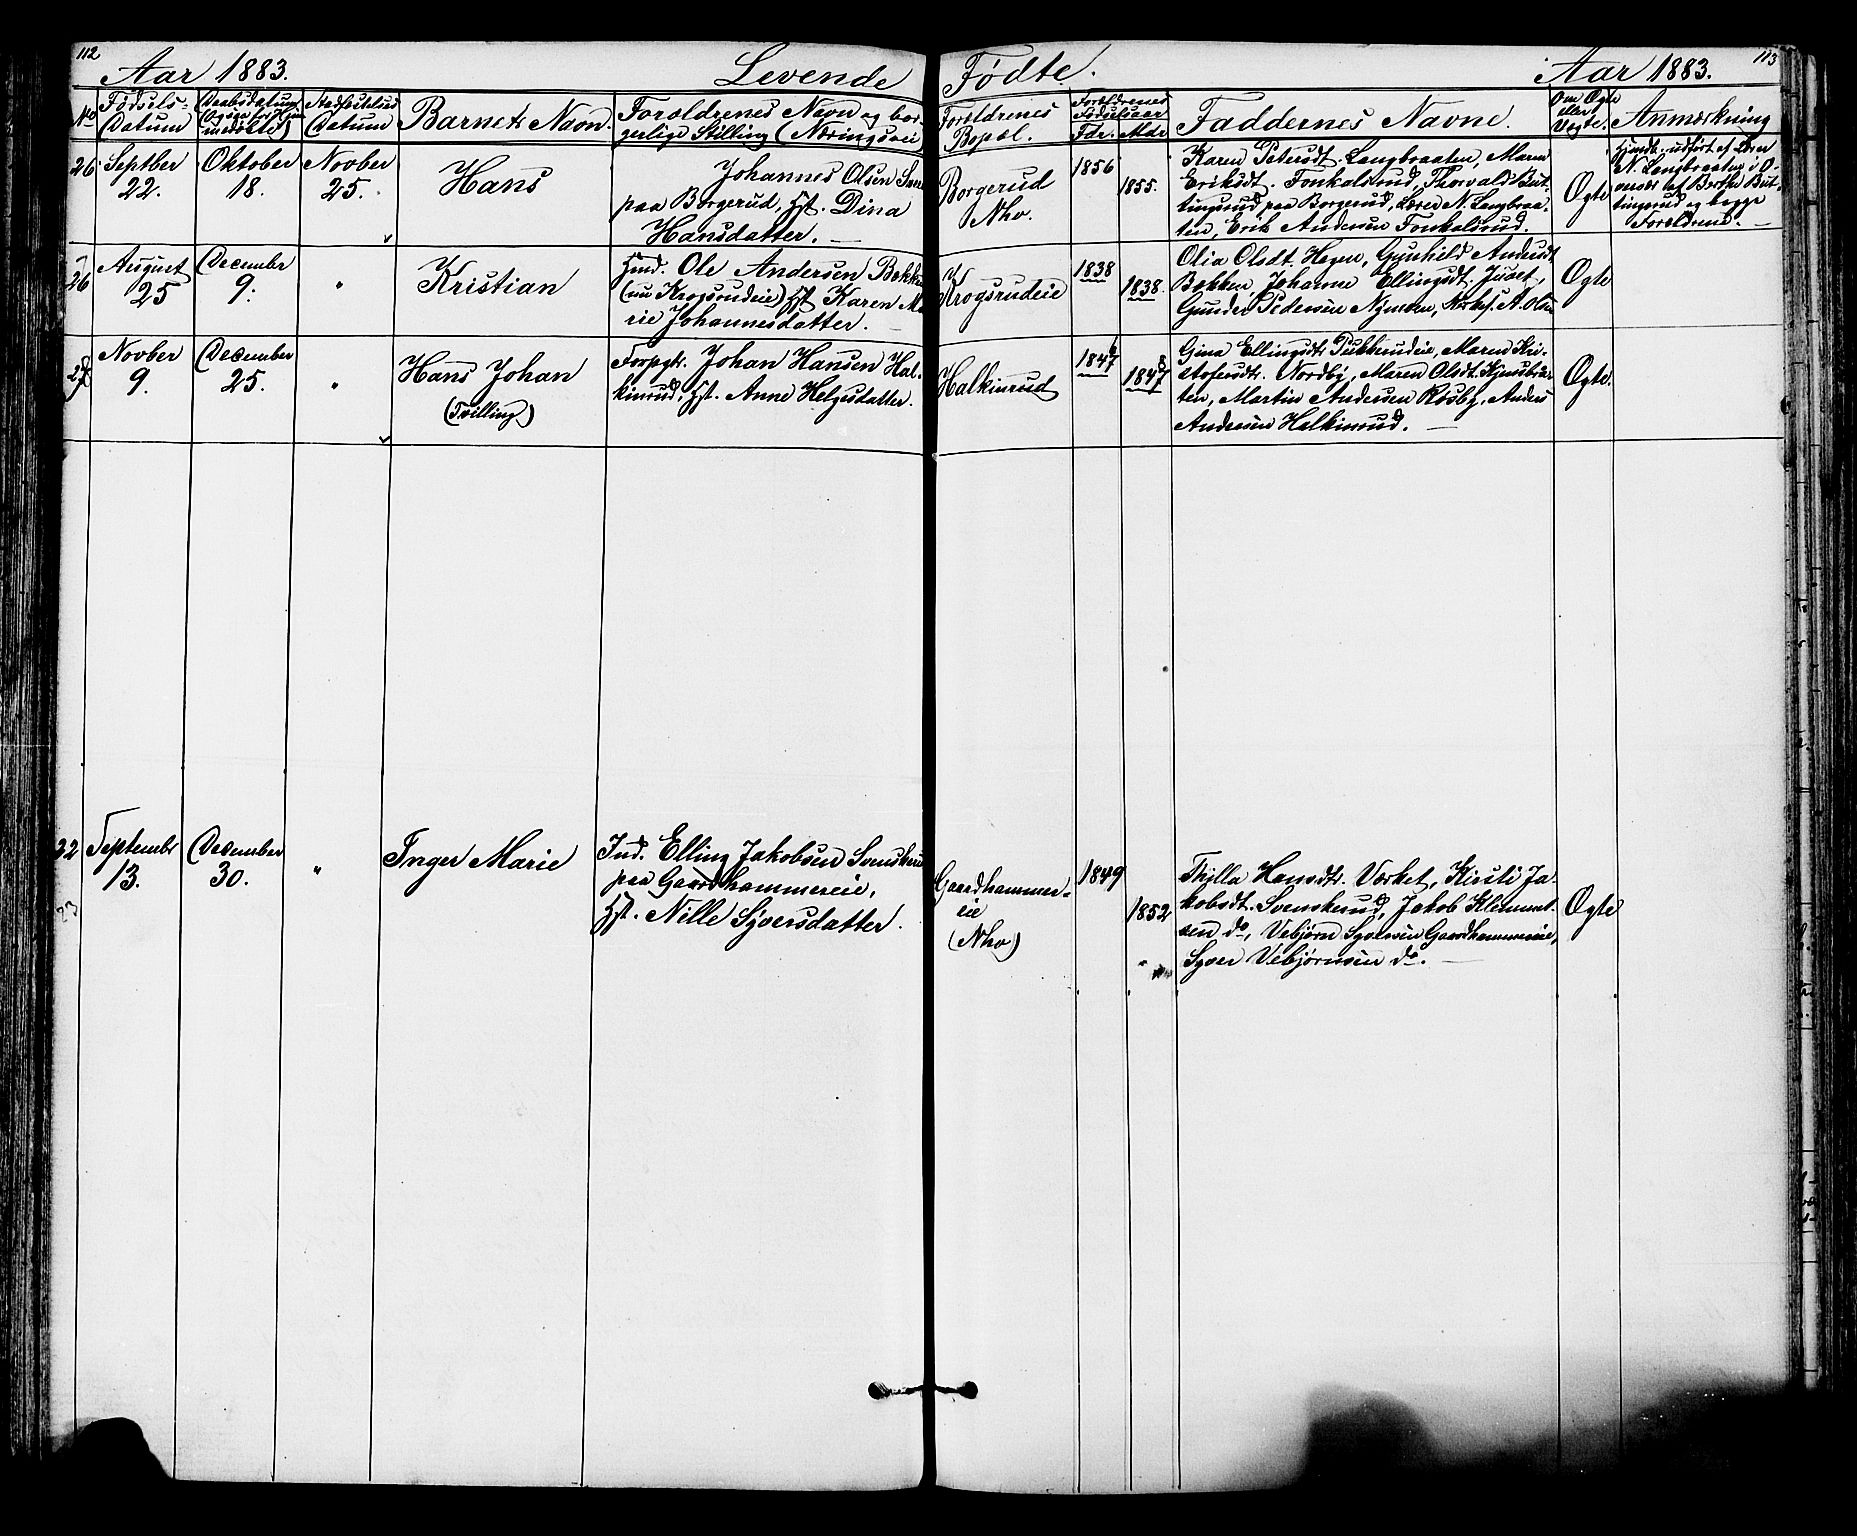 112
Aar 1883.
Levende
Fødte.
Aar 1883.
113
No
Fødsels-
Datum
Daabsdatum
Stadfæstelses
Datum
Barnets Navn.
Forældrenes Navn og bor-
gerlige Stilling (Næringsvei
Forældrenes
Bopæl.
Forældrenes
Fødselsaar
Fdr. Mdr.
Faddernes Navne.
Om Ægte
eller
Uægte.
Anmærkning
26
Septber
22.
Oktober
18.
Novber
25.
Hans
Johannes Olsen
paa Borgerud, Hst. Dina
Hansdatter.
Borgerud
Nho.
1856
1855.
Karen Petersdt. Langbraaten, Maren
Eriksdt. Fonkalsrud, Thorvald But-
tingsrud paa Borgerud, Loren N. Langbraa-
ten, Erik Andersen Fonkalsrud.
Ægte
Hjmdb. udført af Loren
N. Langbraaten i O-
vervær af Berthe But-
tingsrud og begge
Forældrene.
26
August
25
Decembr
9.
"
Kristian
Hmd. Ole Andersen Bakken
(nu Krogsrudeie) Hst Karen Ma
rie Johannesdatter.
Krogsrudeie
1838
1838.
Olia Olsdt. Hagen, Gunhild Andersdt
Bakken, Johanne Ellingsdt. Juvet,
Gunder Pedersen Nymoen, Kirkes. A. Olsen
Ægte
27
Novber
9.
December
25.
"
Hans Johan
(Tvilling)
Forpgtr. Johan Hansen Hal-
kinrud, Hst. Anne Helgesdatter.
Halkinrud
1847
1847
Gina Ellingsdtr. Pukkerudeie, Maren Kri-
stofersdtr. Nordby, Maren Olsdt. Kjensbraa-
ten, Martin Andersen Røsby, Anders
Andersen Halkinrud.
Ægte.
22
23
Septembr
13.
December
30.
"
Inger Marie
Ind. Elling Jakobsen Svenskerud
paa Gaardhammereie,
Hst. Nille Sjversdatter.
Gaardhammer-
eie
(Nho)
1849
1852
Thilla Hansdtr. Værket, Kirsti Ja-
kobsdt. Svenskerud, Jakob Klemmet-
sen do, Vebjørn Syversen Gaardhammereie,
Syver Vebjørnsen do.
Ægte